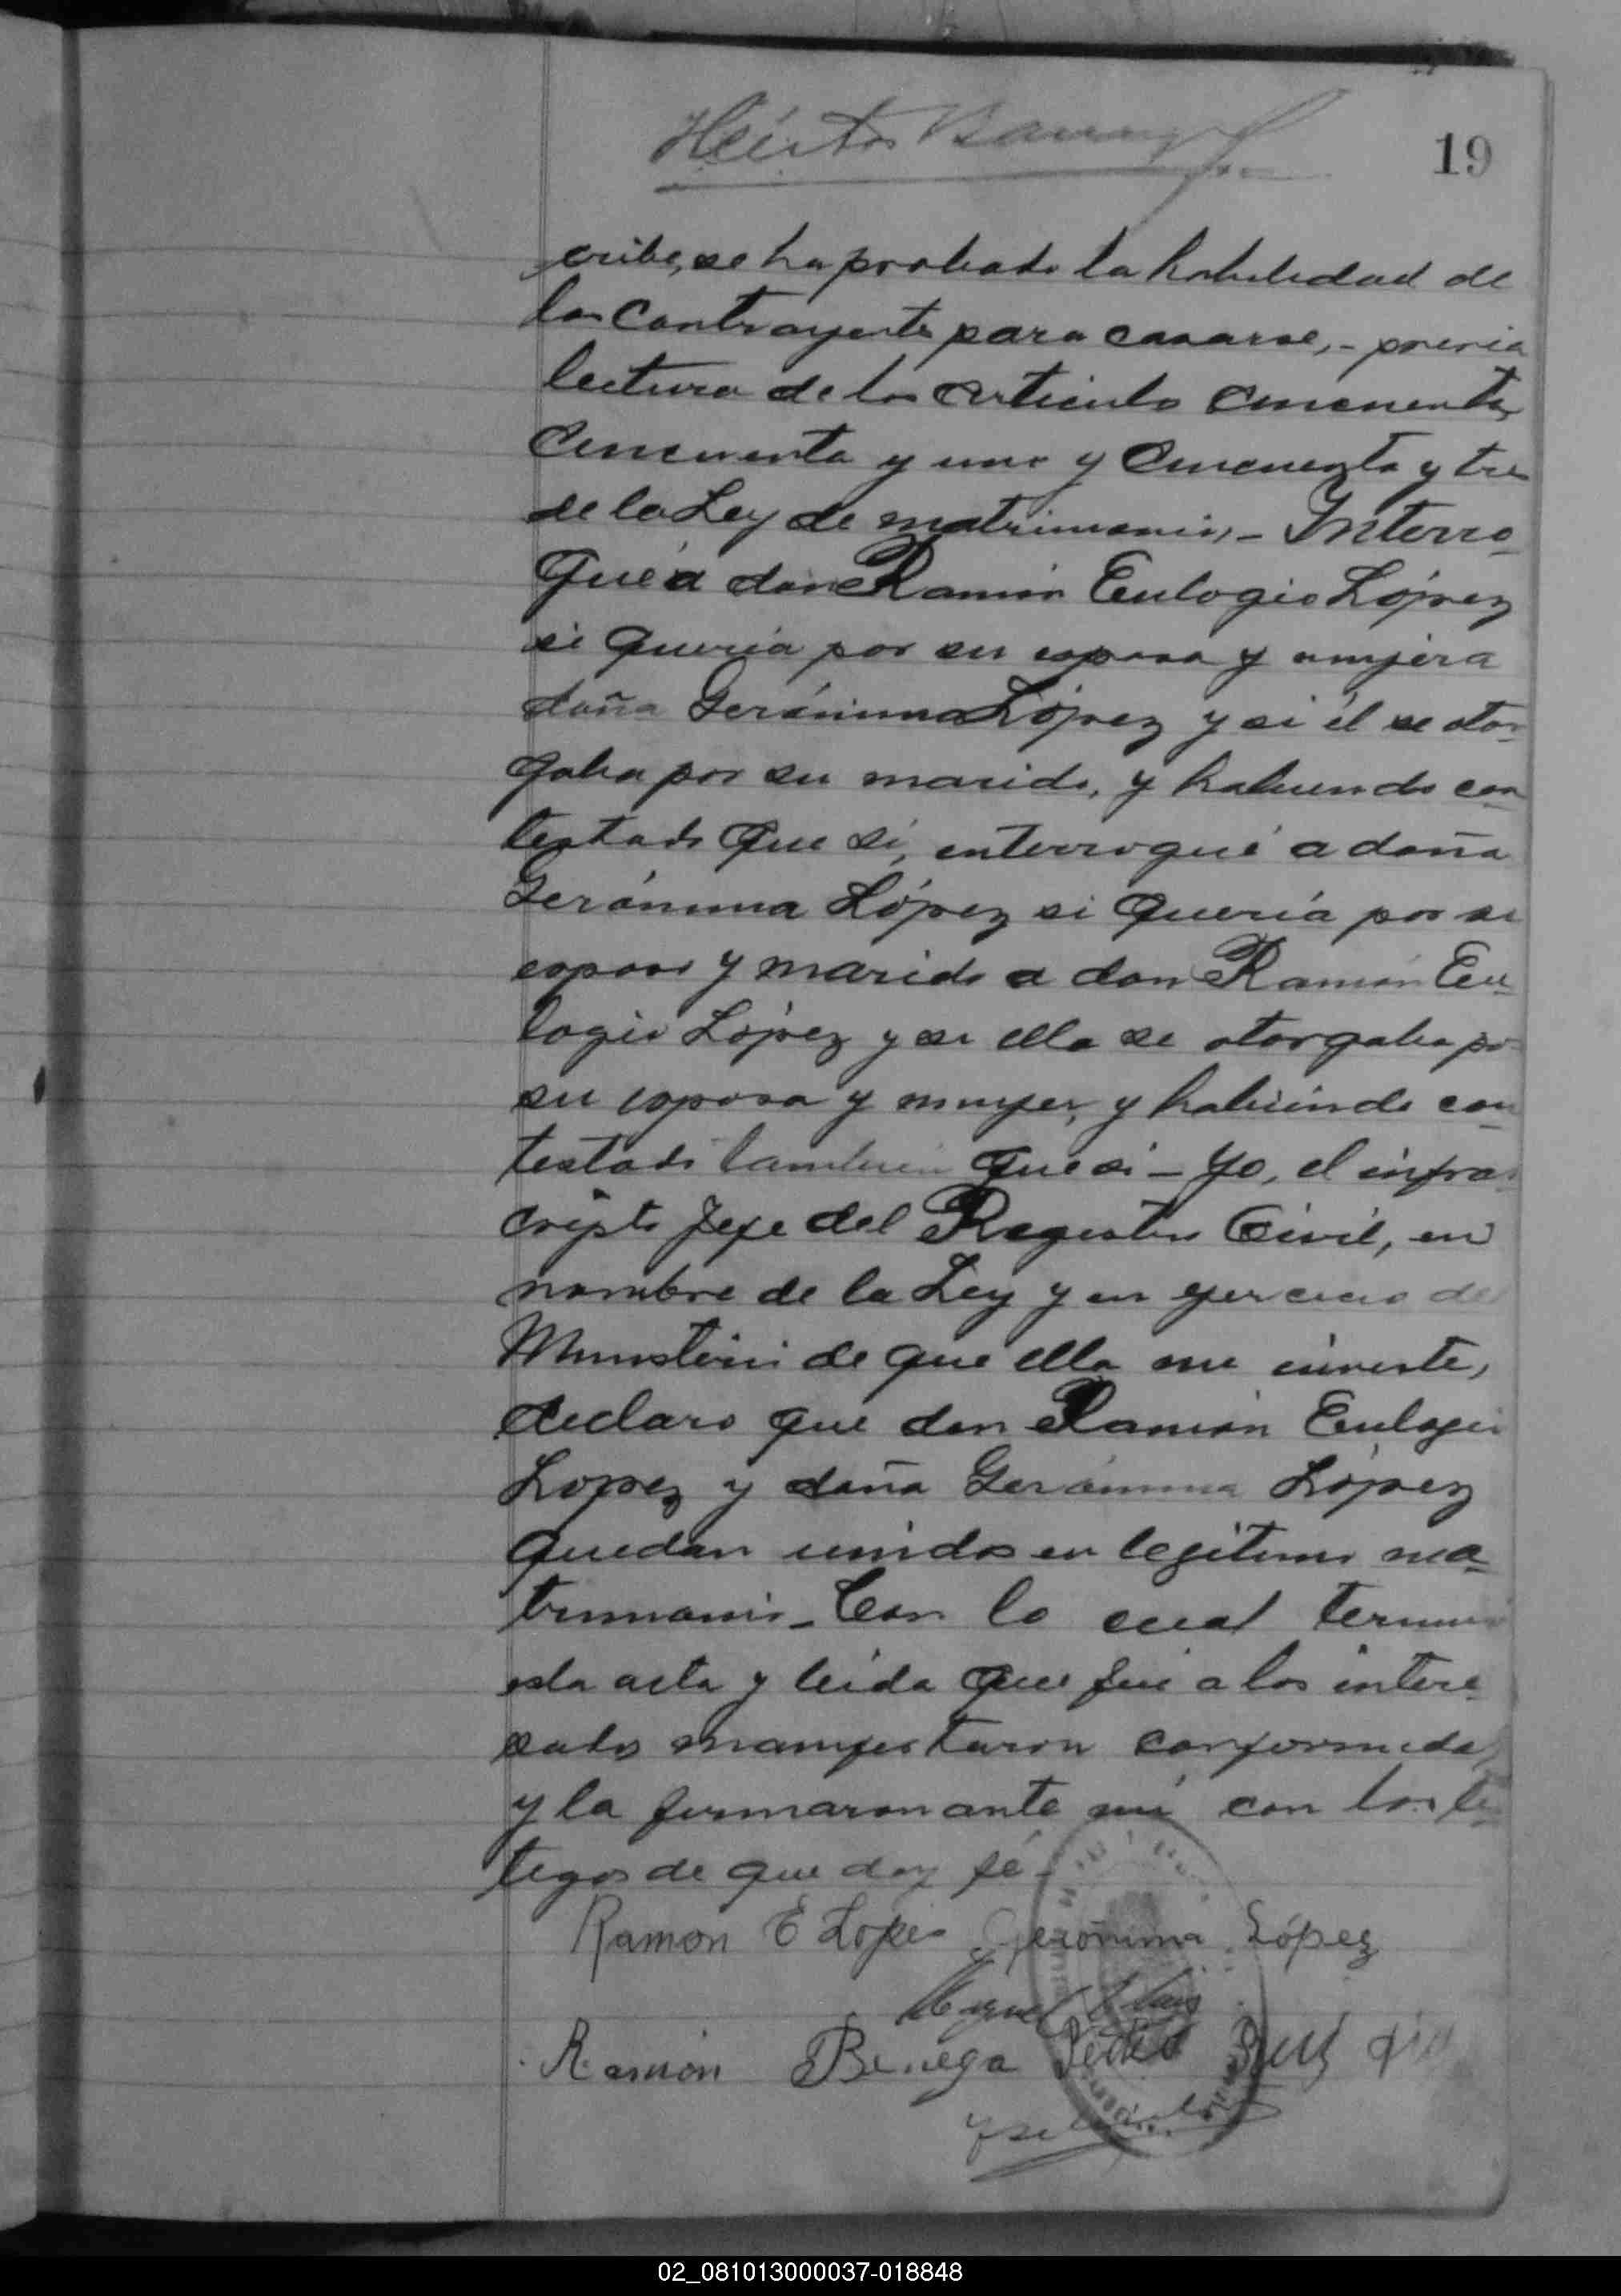 19
cribe, se ha probado la habilidad de
los Contrayentes para casarse, - previa
lectura de los artículo cincuenta,
Cincuenta y uno y Cincuenta y tres
de la Ley de matrimonio, - Interro-
gué á don Ramón Eulogio López
si queria por su esposa y mujer a
doña Gerónima López y si él se otor-
gaba por su marido, y habiendo con-
testado que sí, interrogué a doña
Gerónima López si quería por su
esposo y marido a don Ramón Eu-
logio López y si ella se otorgaba por
su esposa y mujer, y habiendo con-
testado también que si - Yo, el infras-
cripto Jefe del Registro Civil, en
nombre de la Ley y en ejercicio del
Ministerio de que ella me inviste,
declaro que don Ramón Eulogio
Lopez y doña Gerónima López
quedan unidos en legítimo ma-
trimonio - Con lo cual terminó
esta acta y leida que fué a los intere-
sados manifestaron conformidad
y la firmaron ante mí con los tes-
tigos de que doy fé -
Ramon E Lopes Gerónima López
Miguel
Ramón Benega Pedro
02_081013000037-018848